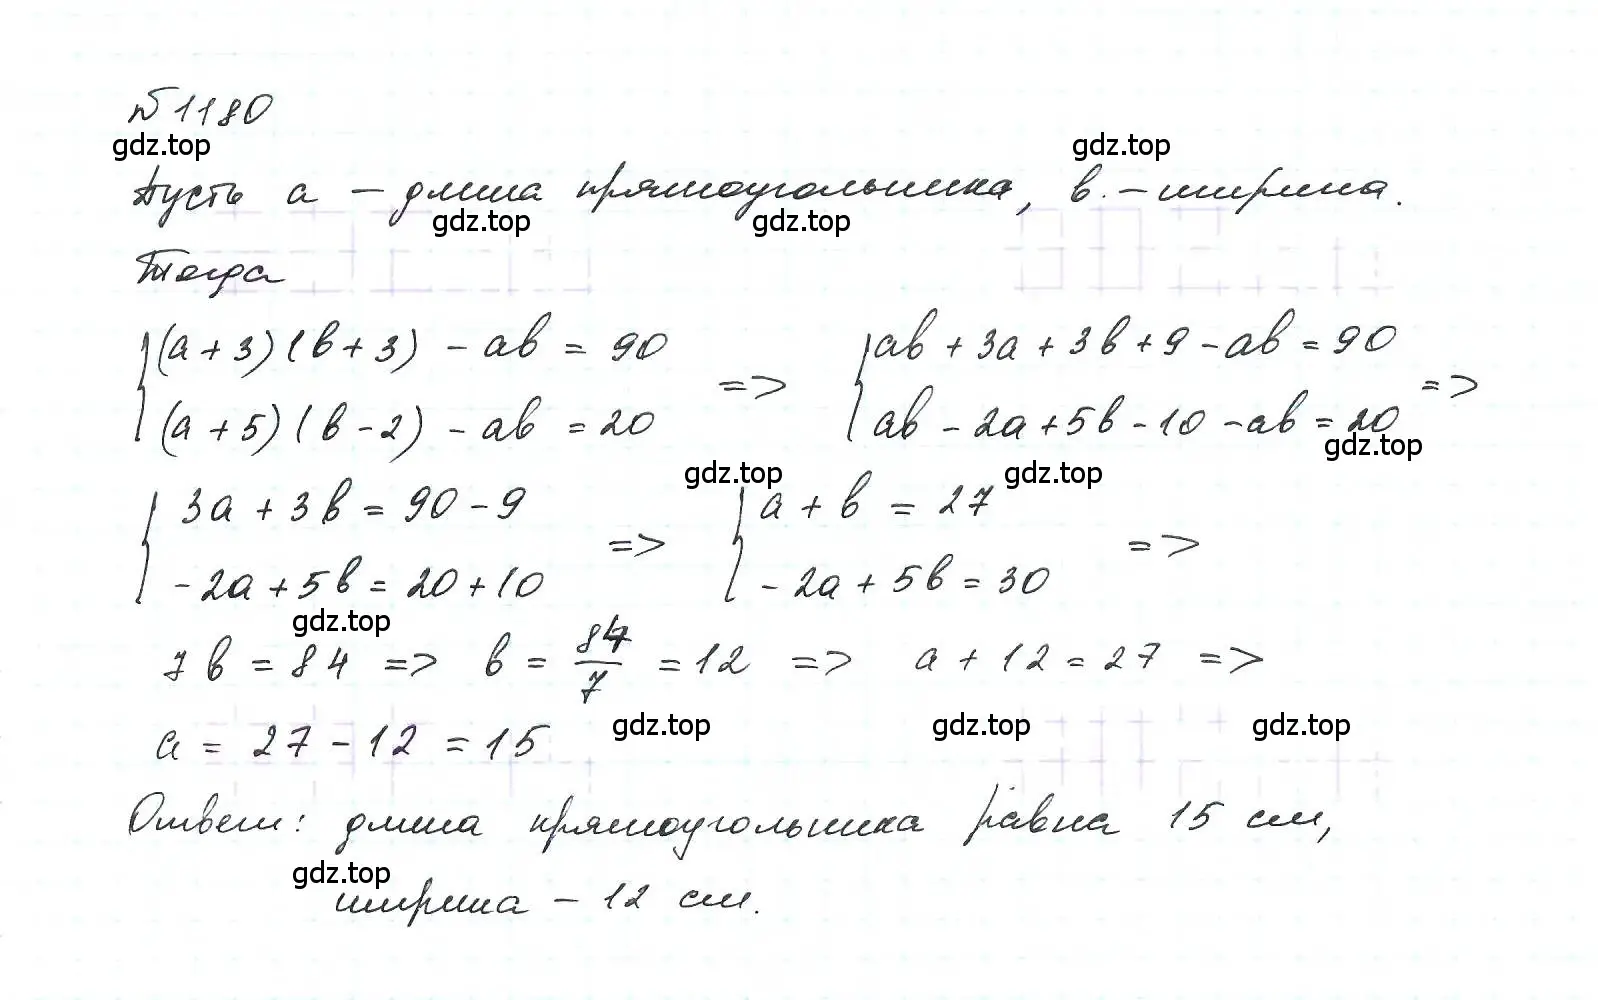 №1180
gdz.top gdz.top
Пусть a – длина прямоугольника, b. – ширина.
gdz.top gdz.top
Тогда
(a+3)(b+3) – ab = 90 => ab + 3a + 3b + 9 – ab = 90 =>
(a+5)(b-2) – ab = 20 ab – 2a + 5b – 10 – ab = 20
gdz.top gdz.top gdz.top
3a + 3b = 90 – 9 => a + b = 27 =>
-2a + 5b = 20 + 10 -2a + 5b = 30
gdz.top
7b = 84 => b = 84/7 = 12 => a + 12 = 27 =>
a = 27 – 12 = 15 gdz.top gdz.top gdz.top
Ответ: длина прямоугольника равна 15 см,
gdz.top
ширина – 12 см.